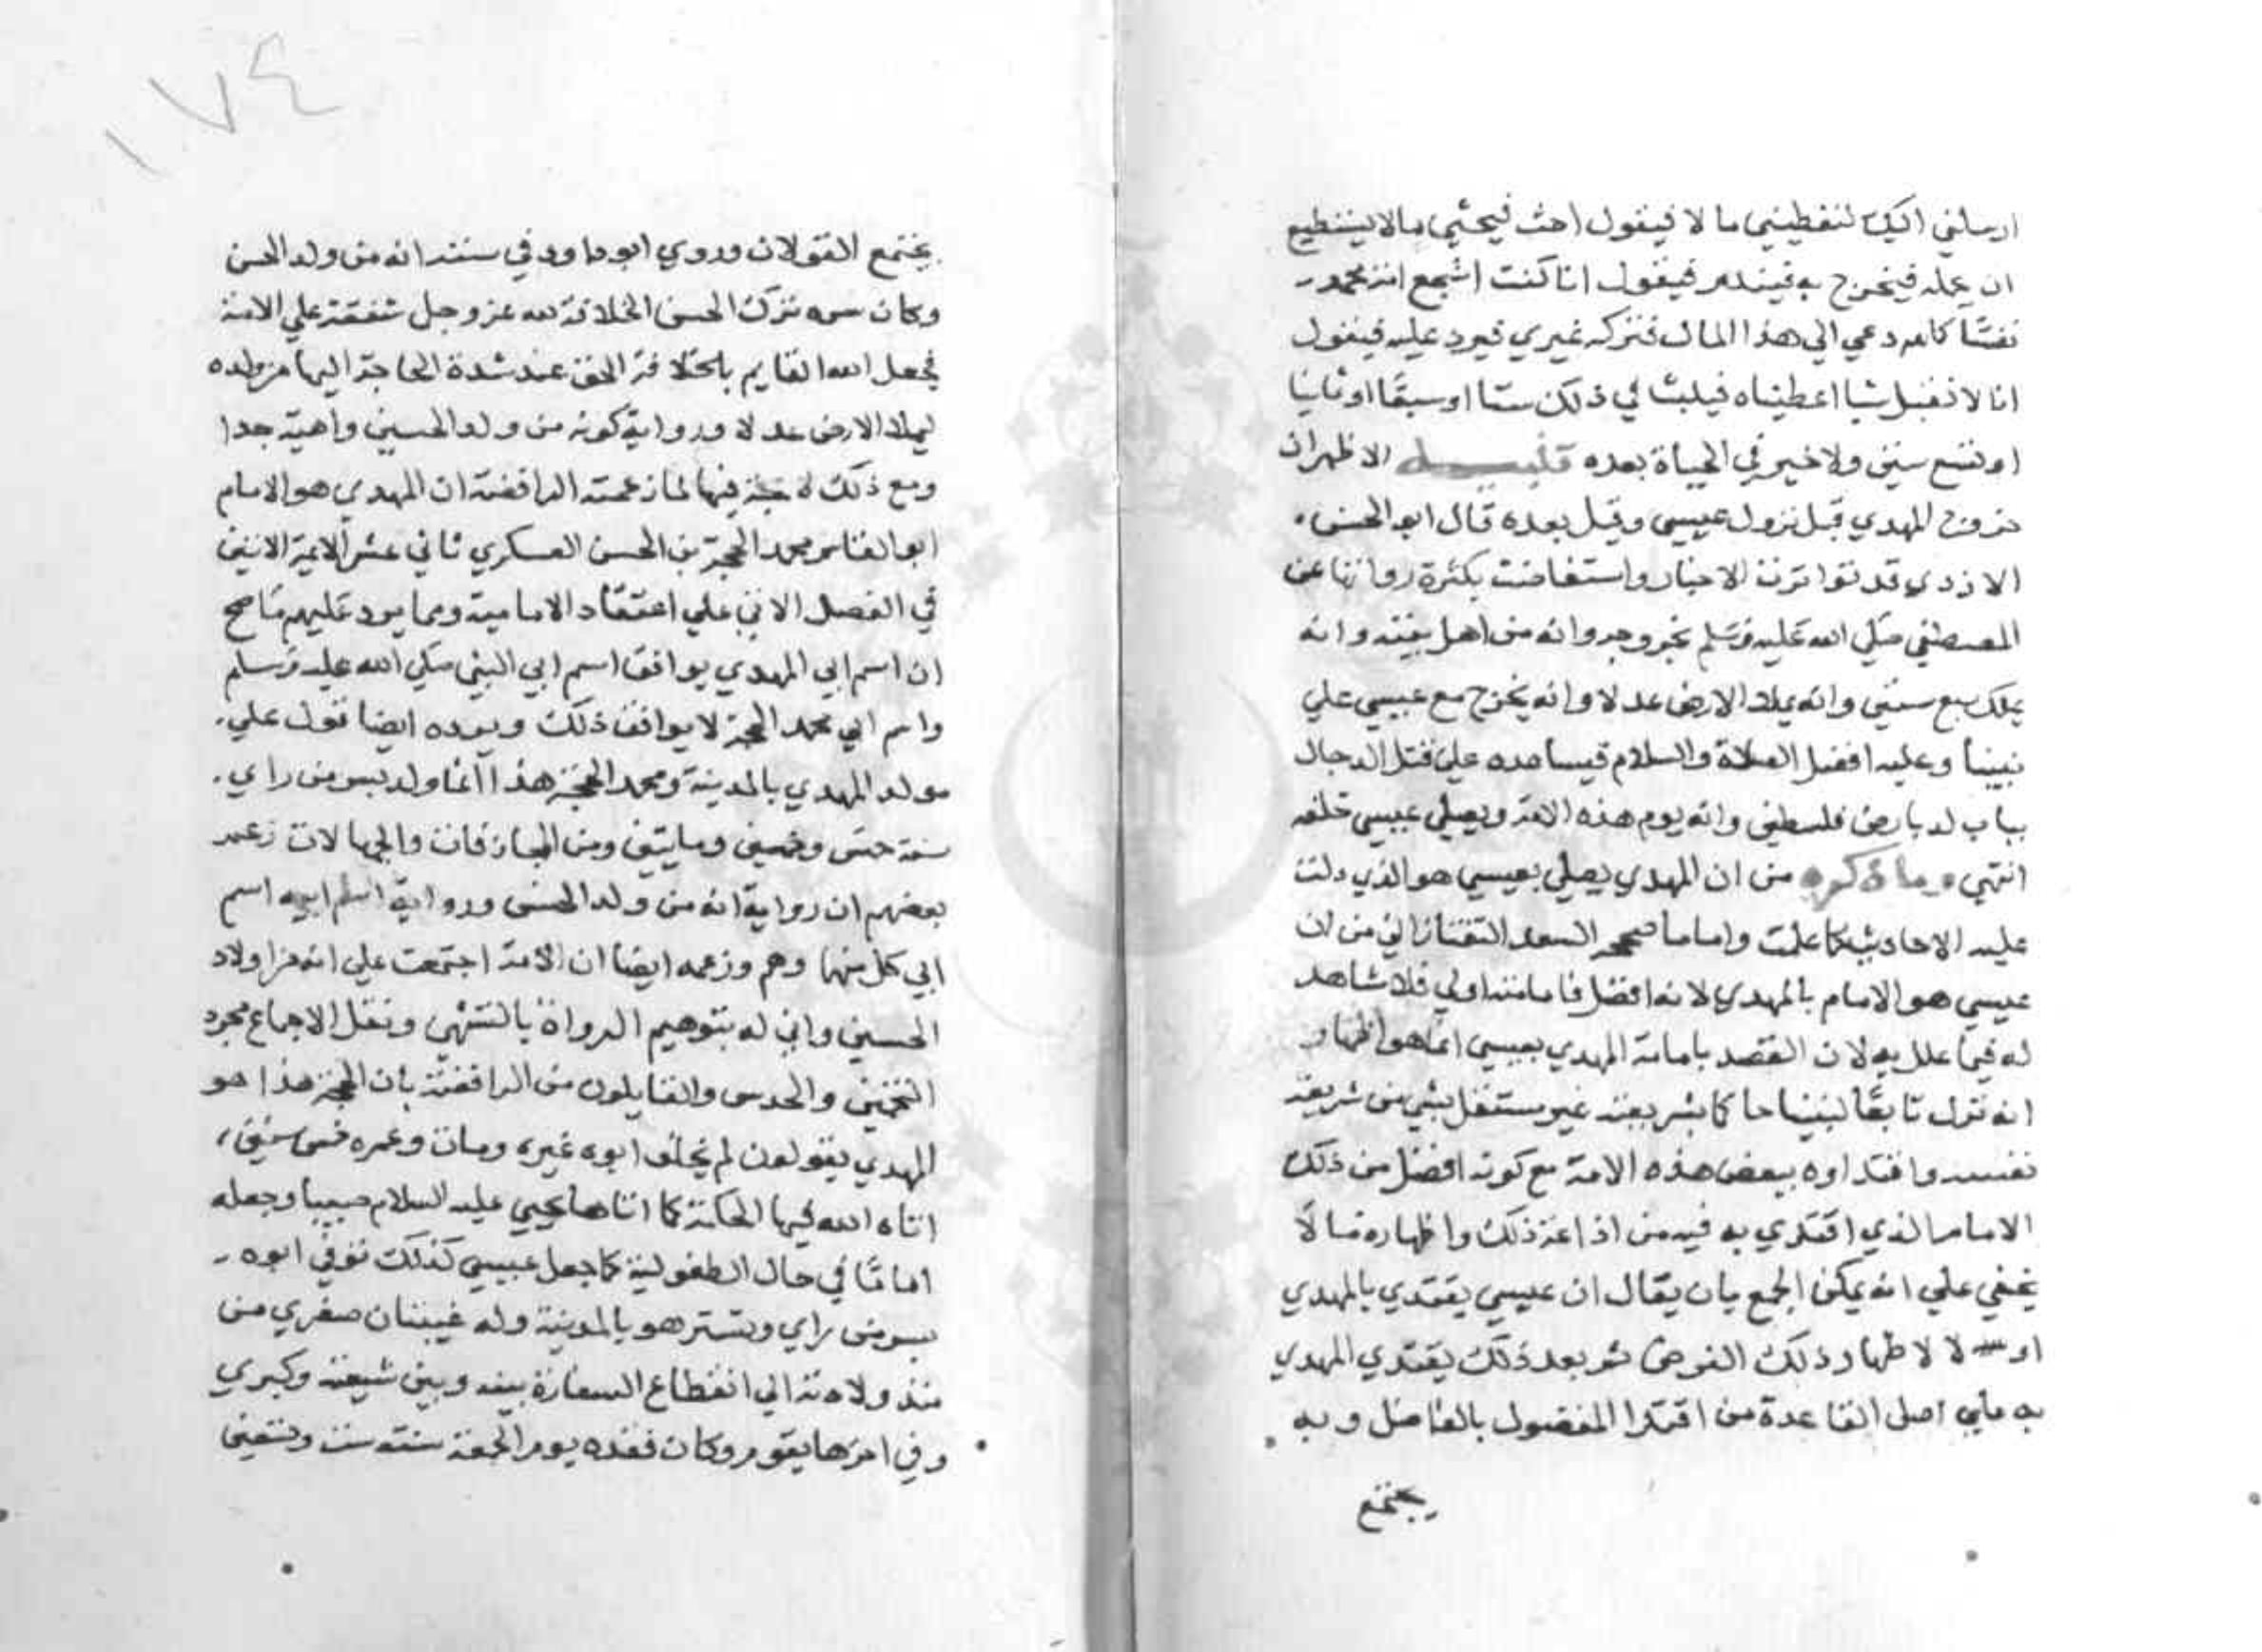 ارسلني اليك لتعطيني مالا فيقول احث فيحثي مالا يستطيع
ان يحمله فيخرج به فيندم فيقول انا كنت اشجع امة محمد
نفسا كلهم دعي الي هذا المال فتركه غيري فيرد عليه فيقول
انا لا نقبل شيا اعطيناه فيلبث في ذلك ستا او سبعا او ثمانيا
او تسع سنين ولا خير في الحياة بعده الاظهر ان
خروج المهدي قبل نزول عيسي وقيل بعده قال ابو الحسن
الازدي قد تواترت الاخبار واستفاضت بكثرة رواتها عن
المصطفي صلي الله عليه وسلم بخروجه وانه من اهل بيته وانه
يملك سبع سنين وانه يملا الارض عدلا وانه يخرج مع عيسي علي
نبينا وعليه افضل الصلاة والسلام فيساعده علي قتل الدجال
بباب لد بارض فلسطين وانه يوم هذه الامة ويصلي عيسي خلفه
انتهي وما ذكره من ان المهدي يصلي بعيسي هو الذي دلت
عليه الاحاديث كما علمت واما ما صححه السعد التفتازاني من ان
عيسي هو الامام بالمهدي لانه افضل فامامته اولي فلا شاهد
له فيما علل به لان القصد بامامة المهدي بعيسي انما هو اظهار
انه نزل تابعا لنبينا حاكما بشريعته غير مستقل بشي من شريعة
نفسه واقتداوه ببعض هذه الامة مع كونه افضل من ذلك
الامام الذي اقتدي به فيه من اذاعة ذلك واظهاره مالا
يخفي علي انه يمكن الجمع بان يقال ان عيسي يقتدي بالمهدي
اولا لاظهار ذلك الغرض ثم بعد ذلك يقتدي المهدي
به علي اصل القاعدة من اقتدا المفضول بالفاضل وبه
يجتمع
١٧٤
يجتمع القولان وروي ابو داود في سننه انه من ولد الحسن
وكان سره ترك الحسن الخلافة لله عز وجل شفقة علي الامة
فجعل الله القايم بالخلافة الحق عند شدة الحاجة اليها من ولده
ليملا الارض عدلا ورواية كونه من ولد الحسين واهية جدا
ومع ذلك لا حجة فيها لما زعمته الرافضة ان المهدي هو الامام
ابو القاسم محمد الحجة بن الحسن العسكري ثاني عشر الايمة الاتين
في الفصل الاتي علي اعتقاد الامامية ومما يرد عليهم ما صح
ان اسم ابي المهدي يوافق اسم ابي النبي صلي الله عليه وسلم
واسم ابي محمد الحجة لا يوافق ذلك ويرده ايضا قول علي
مولد المهدي بالمدينة ومحمد الحجة هذا انما ولد بسر من راي
سنة خمس وخمسين ومايتين ومن المجازفات والجهالات زعم
بعضهم ان رواية انه من ولد الحسن ورواية اسم ابيه اسم
ابي كل منهما وهم وزعمه ايضا ان الامة اجتمعت علي انه من اولاد
الحسين واني له بتوهيم الرواة بالتشهي ونقل الاجماع بمجرد
التخمين والحدس والقايلون من الرافضة بان الحجة هذا هو
المهدي يقولون لم يخلف ابوه غيره ومات وعمره خمس سنين
اتاه الله فيها الحكمة كما اتاها يحيي عليه السلام صبيا وجعله
اماما في حال الطفولية كما جعل عيسي كذلك توفي ابوه
بسر من راي وتستر هو بالمدينة وله غيبتان صغري من
منذ ولادته الي انقطاع السفارة بينه وبين شيعته وكبري
وفي اخرها يقوم وكان فقده يوم الجمعة سنة ست وتسعين